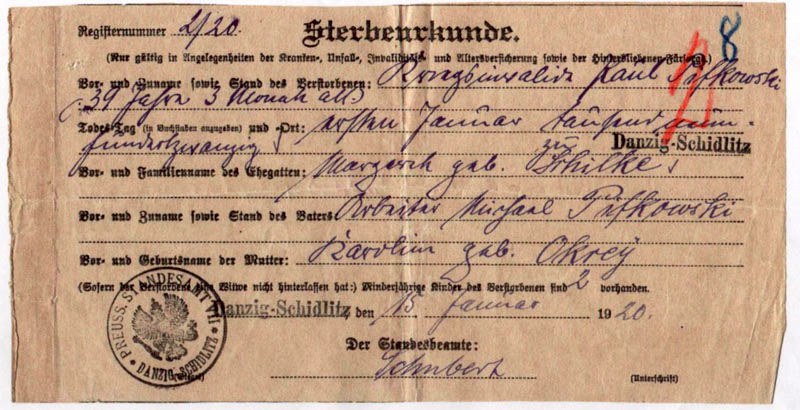 Registernummer 2/20. Sterbeurkunde. 8
(Nur gültig in Angelegenheiten der Kranken-, Unfall-, Invaliditäts- und Altersversicherung sowie der Hinterbliebenen-Fürsorge.)
Vor- und Zuname sowie Stand des Verstorbenen: Kriegsinvalide Paul
39 Jahre 3 Monat alt
Todes-Tag (in Buchstaben anzugeben) und -Ort: ersten Januar tausend neun-
hundertzwanzig zu Danzig-Schidlitz
Vor- und Familienname des Ehegatten: geb. Schilke
Vor- und Zuname sowie Stand des Vaters Arbeiter Michael
Vor- und Geburtsname der Mutter: Karoline geb. Okrey
(Sofern der Verstorbene eine Witwe nicht hinterlassen hat:) Minderjährige Kinder des Verstorbenen sind 2 vorhanden.
Danzig-Schidlitz, den 15 Januar 1920.
Der Standesbeamte:
PREUSS. STANDESAMT VII
DANZIG-SCHIDLITZ
Schubert
(Unterschrift)